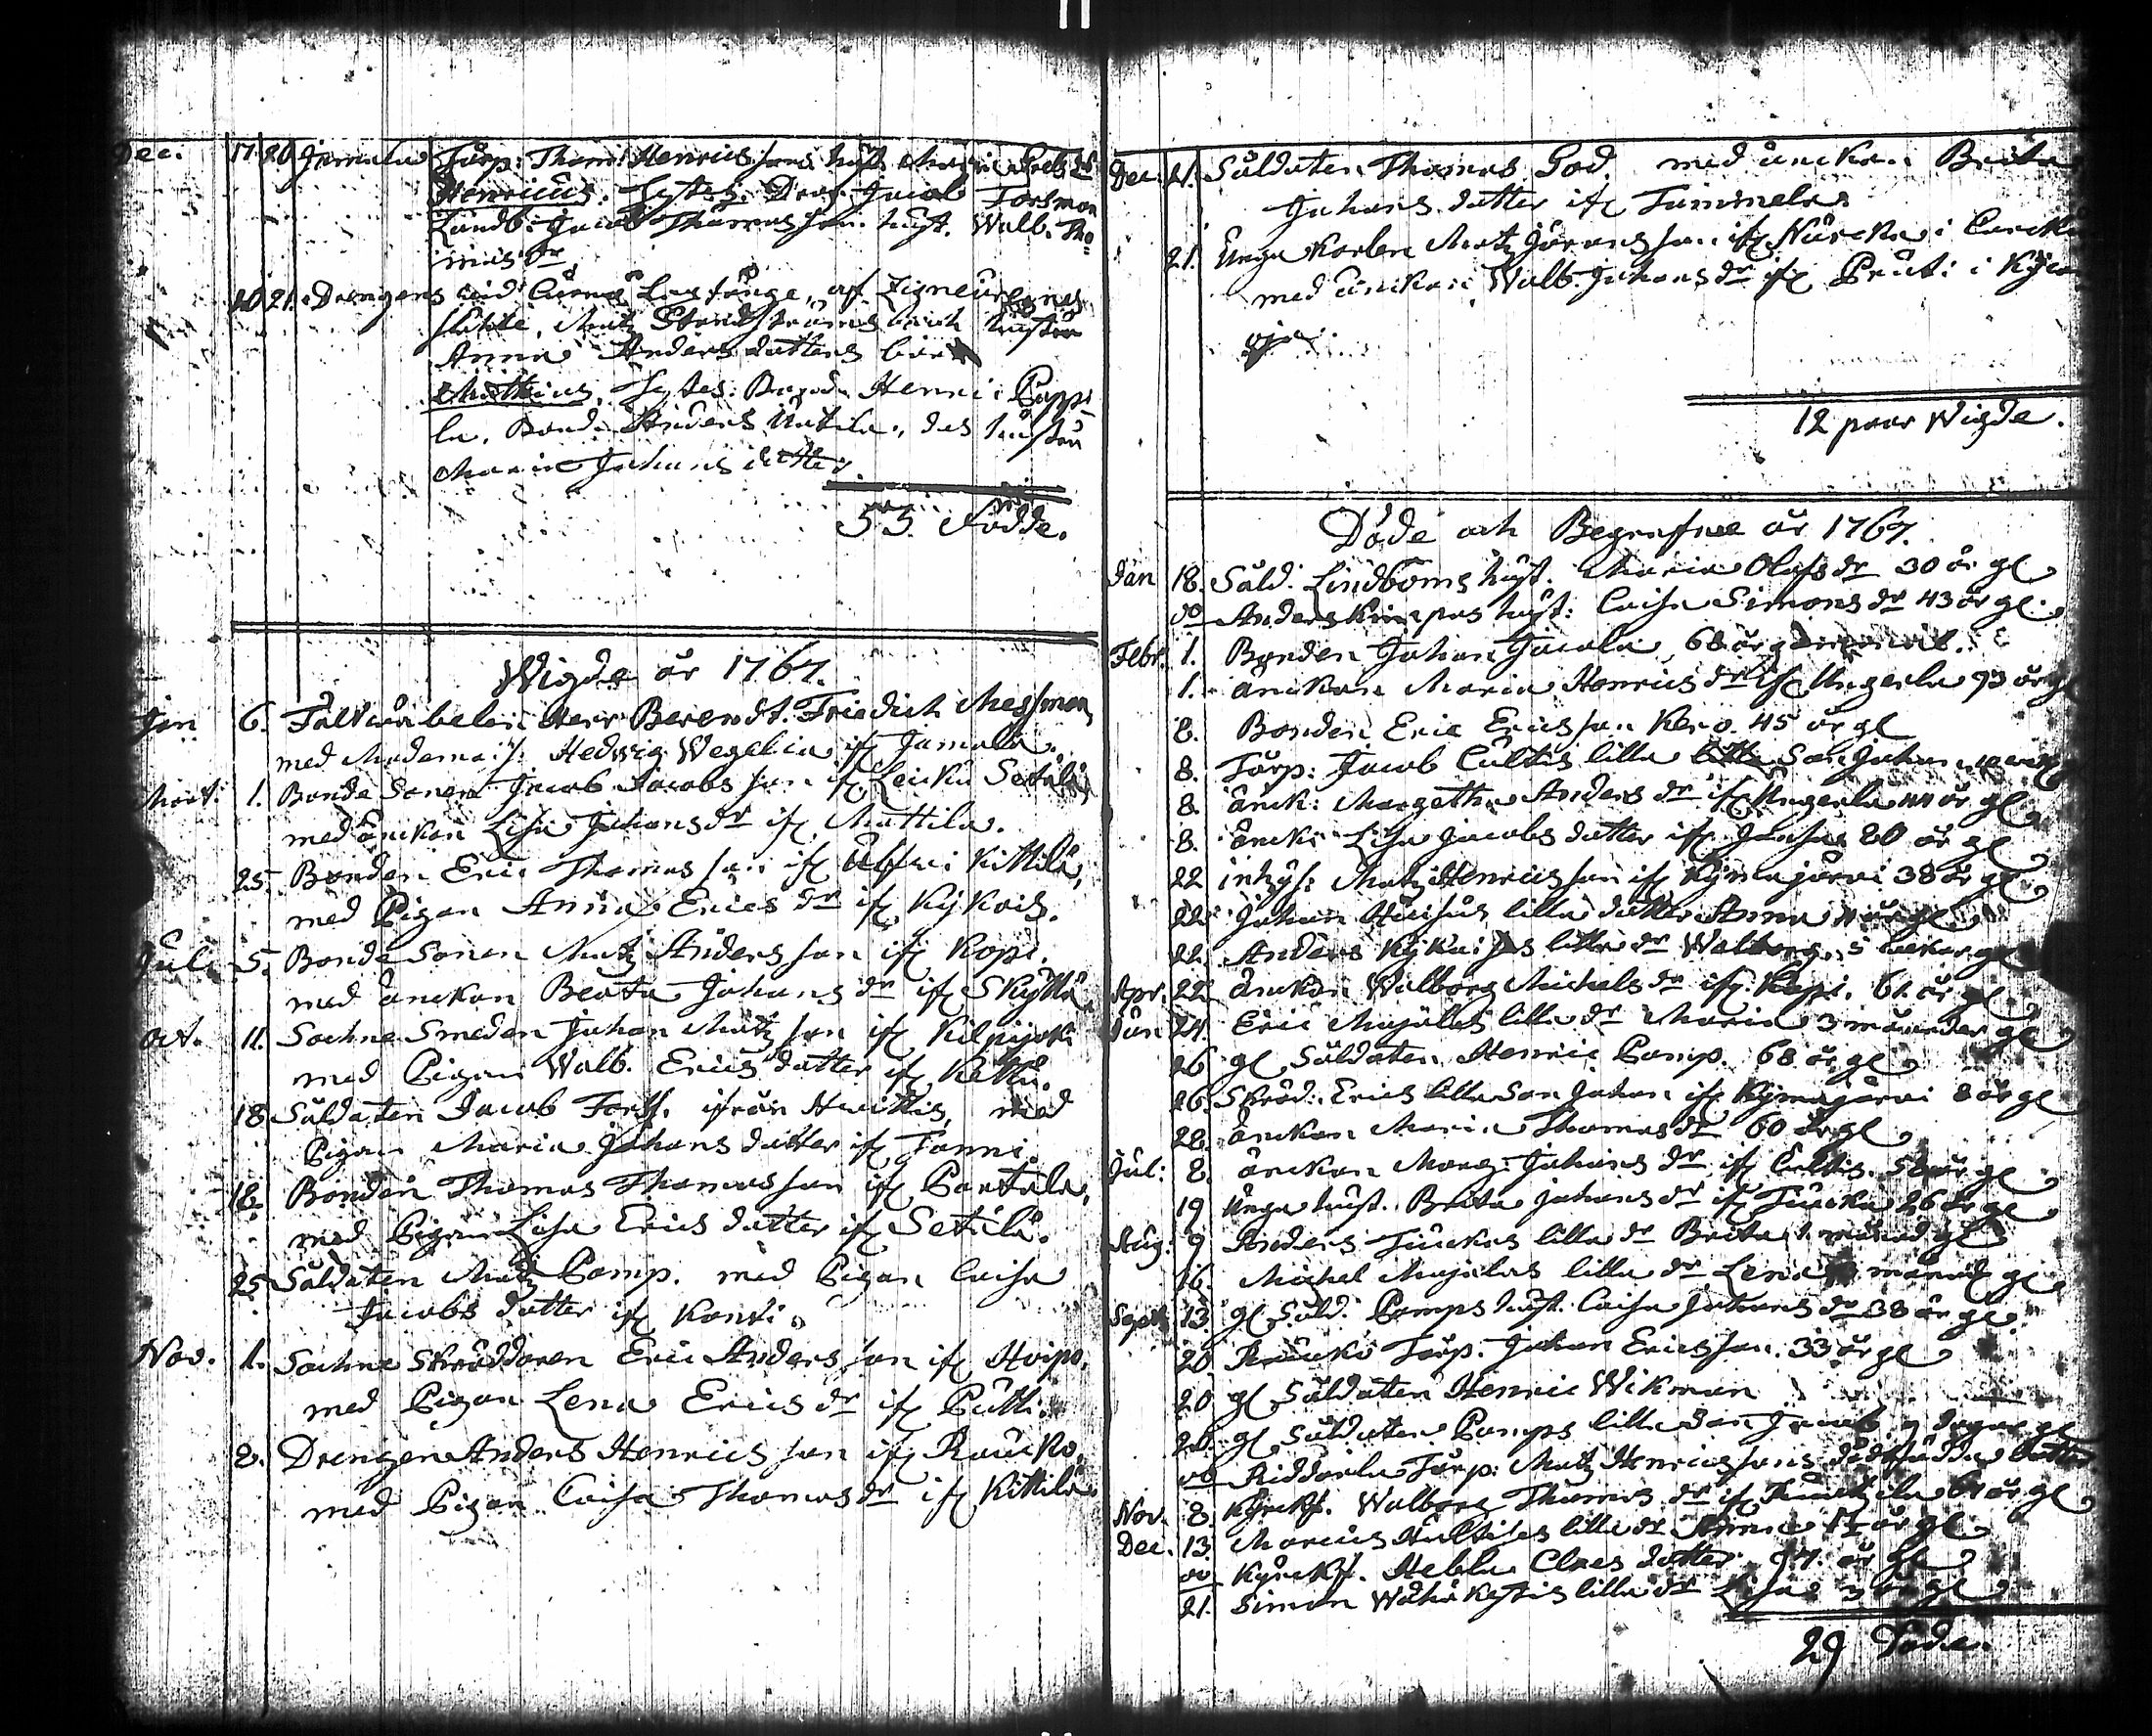 Dec. 17. 20. Jamala Torp: Thom: Henricssons hust. Maria
Henricus. Testes. Dräng Jacob Forsman
Landb: Jacob Thomasson. hust. Walb. Tho-
mas dr
20 21. Drengens wid
Matz Strandströms och hustru
Anna Andersdotters barn
Matthias. Testes: Bonde Henric Pappi-
la. Bonde Anders Uotila, des hustru
Maria Johansdotter.
55. Födde.
Wigde år 1767.
Jan 6. Fältwäbelen Herr Berendt Friedich Messman
med Mademois. Hedwig Wegelia ifr Jamala.
Mart. 1. Bonde Sonen Jacob Jacobsson ifr Leicku Setälä
med änckan Lisa Johansdr ifr Mattila.
25. Bonden Eric Thomasson ifr Kittilä,
med Pigan Anna Ericsdr ifr Kykois.
Jul. 5. Bonde Sonen Matz Andersson ifr Kopi.
med änckan Beata Johansdr ifr Skyttä.
Oct. 11. Sockne Smeden Johan Matzson ifr Kilpijoki
med Pigan Walb. Ericsdotter ifr Kettu.
18 Saldaten Jacob Forss. ifrån Huittis, med
Pigan Maria Johansdotter ifr Tommi.
18. Bonden Thomas Thomasson ifr Partala,
med Pigan Lisa Ericsdotter ifr Setälä.
25 Saldaten Matz Pamp. med Pigan Caisa
Jacobsdotter ifr Konti.
Nov. 1. Sockne Skräddaren Eric Andersson ifr Hoipo.
med Pigan Lena Ericsdr ifr Putti.
8. Drengen Anders Henricsson ifr Raucko,
med Pigan Caisa Thomasdr ifr Kittilä.
Dec. 21. Saldaten Thomas God. med änckan Brita
Johansdotter ifr Tummela
21. Unga Karlen Matz Jöransson ifr Näreke i
med änckan Walb. Johansdr ifr Prusi i
oja.
12 paar Wigde.
Döde och Begrafne år 1767.
Jan 18. Sald. Lindboms hust. Maria Olofsdr 30 år gl
do Anders Kimpas hust: Caisa Simonsdr 43 år gl.
Febr. 1. Bonden Johan Jacala, 68 år
1. änckan Maria Henricsdr ifr Ungerla 73 år gl
8. Bonden Eric Ericsson Kero. 45 år gl
8. Torp: Jacob Cultis lilla Son Johan
8. änck: Margetha Andersdr ifr Ungerla 44 år gl
8. änck: Lisa Jacobsdotter ifr Jansa 80 år gl
22 inhys: Matz Henricsson ifr Kymajärvi 38 år gl
22. Johan lilla dotter Anna år gl
22. Anders Kykoises lilla dr Walborg. 5 weckor gl
Apr. 22. änckan Walborg Michelsdr ifr Kopi. 61. år gl.
Jun 24. Eric Majalas lilla dr Maria 3 månader gl
26 gl Saldaten Henric Pamp. 68 år gl
26. Skräd. Erics lilla Son Johan ifr Kymajärvi 8 år gl
28. änckan Maria Thomasdr 60 år gl
Jul: 8. änckan Marg: Johansdr ifr Cultis. år gl
19 Unga hust. Brita Johansdr ifr Juncka 26 år gl
Aug. 9 Anders Junckas lilla dr Brita 1. månad gl
16. Michel Majalas lilla dr Lena månad gl
Sept. 13 gl Sald. Pamps hust. Caisa Johansdr 38 år gl.
20 Raucko Torp. Johan Ericsson. 33 år gl
20 gl Saldaten Henric Wikman
20. gl Saldaten Pamps lilla Son Jacob 9 dagar gl
do Riddarla Torp: Matz Henricssons dödfödda dotter
Nov. 8. Kyrckf. Walborg Thomasdr ifr 61 år gl
Dec. 13. Marcus lilla dr Anna år gl
do Kyrckf. Hebla Claesdotter. 97. år gl
21. Simon Wähäkestis lilla dr Lisa år gl
29 Döde.